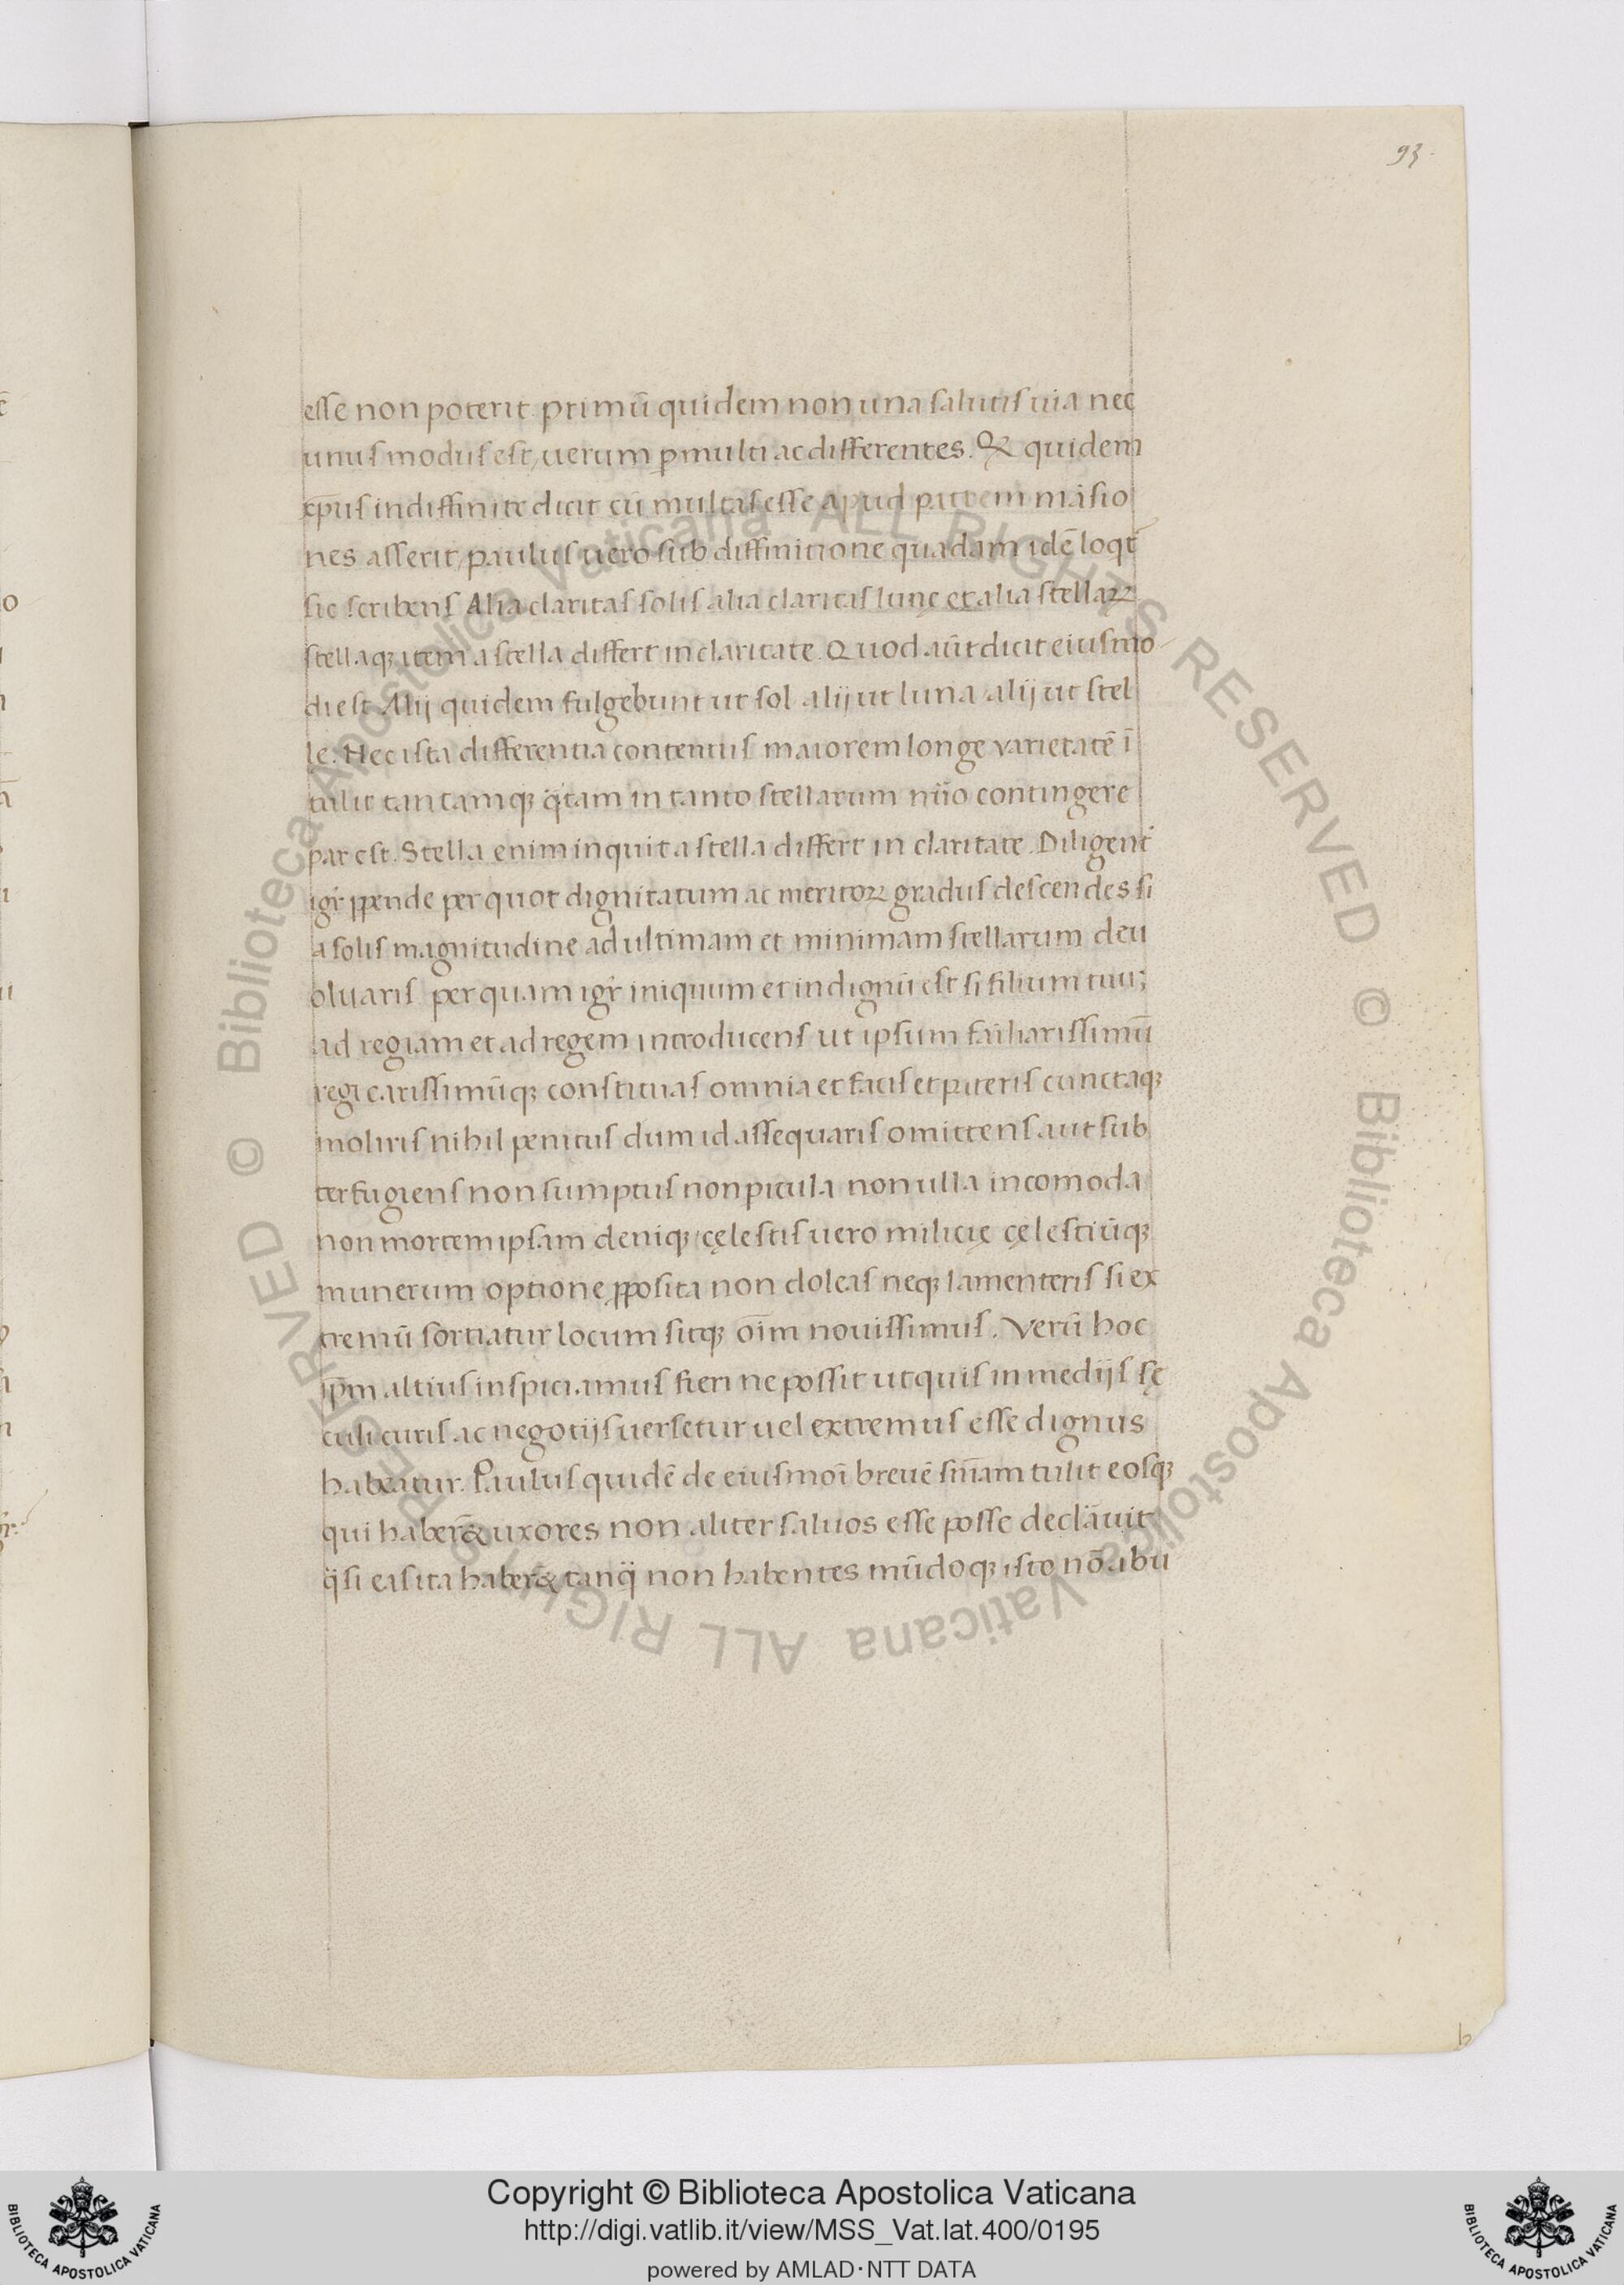 93.
esse non poterit. primū quidem non una salutis uia nec
unus modus est, uerum ꝑmulti ac differentes. Et quidem
xp̄us indiffinite dicit cū multas esse apud patrem māsio
nes asserit, paulus uero sub diffinitione quadam idē loqt̄
sic scribens Alia claritas solis alia claritas lunę et alia stellaꝝ
stellaqꝫ item a stella differt in claritate. Quod aūt dicit eiusmo
di est Alij quidem fulgebunt ut sol alij ut luna, alij ut stel
lę. Nec ista differentia contentus maiorem longe varietatē ī
tulit tantamqꝫ q̄tam in tanto stellarum nūo contingere
par est. Stella enim inquit a stella differt in claritate. Diligent᷑
igr̄ ꝓpende per quot dignitatum ac meritoꝝ gradus descendes si
a solis magnitudine ad ultimam et minimam stellarum deu
oluaris. per quam igr̄ iniquum et indignū est si filium tuū
ad regiam et ad regem introducens ut ipsum fāiliarissimū
regi carissimūqꝫ constituas omnia et facis et pateris cunctaqꝫ
moliris nihil penitus dum id assequaris omittens aut sub
terfugiens non sumptus non picula non ulla incomoda
non mortem ipsam deniqꝫ, cęlestis uero milicię cęlestiūqꝫ
munerum optione ꝓposita non doleas neqꝫ lamenteris si ex
tremū sortiatur locum sitqꝫ oīm nouissimus. Verū hoc
ip̄m altius inspiciamus fieri ne possit ut quis in medijs sę
culi curis ac negotijs uersetur uel extremus esse dignus
habeatur. Paulus quidē de eiusmōi breuē sn̄iam tulit eosqꝫ
qui haber& uxores non aliter saluos esse posse declāuit
q̄ si eas ita haber& tanq̄ non habentes mūdoqꝫ isto nō abu
b
© Biblioteca Apostolica Vaticana ALL RIGHTS RESERVED © Biblioteca Apostolica Vaticana ALL RIGHTS RESERVED
Copyright © Biblioteca Apostolica Vaticana
http://digi.vatlib.it/view/MSS_Vat.lat.400/0195
powered by AMLAD·NTT DATA
BIBLIOTECA APOSTOLICA VATICANA
BIBLIOTECA APOSTOLICA VATICANA